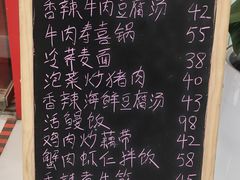 香辣牛肉豆腐汤 42
牛肉寿喜锅 55
冷荞麦面 38
泡菜炒猪肉 40
香辣海鲜豆腐汤 43
活鳗饭 98
鸡肉炒藕带 42
蟹肉虾仁拌饭 58
45